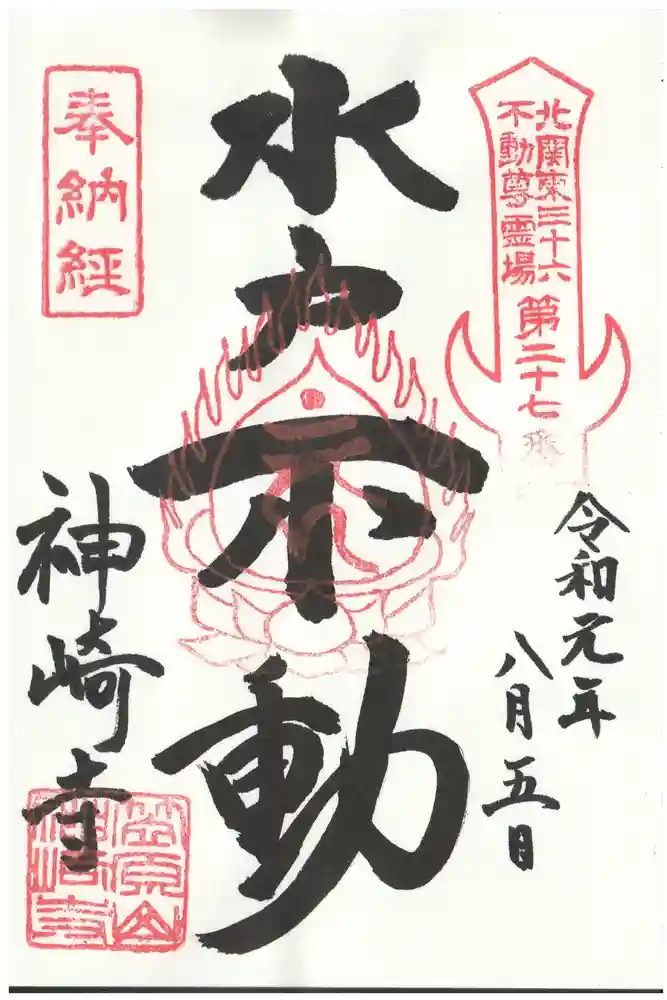 北関東三十六
不動尊霊場
第二十七番
令和元年
八月五日
水戸不動
奉納経
神崎寺
笠原山
神崎寺